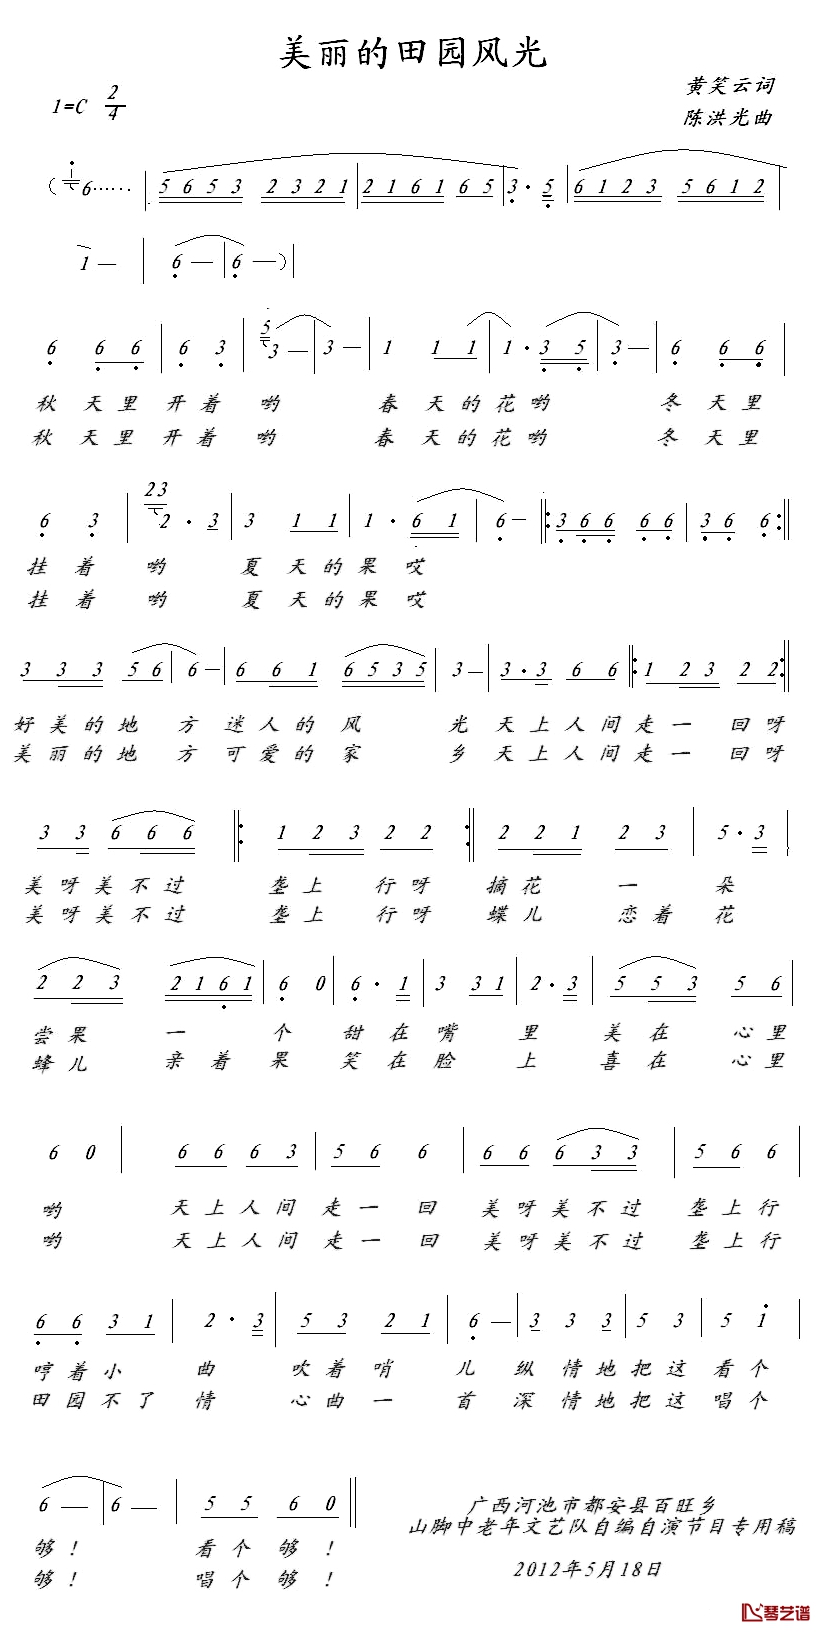 美丽的田园风光
黄笑云词
1=C 2/4
陈洪光曲
( i 6······ | 5 6 5 3 2 3 2 1 | 2 1 6 1 6 5 | 3 · 5 | 6 1 2 3 5 6 1 2 |
1 — | 6 — | 6 — ) |
6 6 6 | 6 3 | 5 3 — | 3 — | 1 1 1 | 1 · 3 5 | 3 — | 6 6 6 |
秋 天 里 开 着 哟 春 天 的 花 哟 冬 天 里
秋 天 里 开 着 哟 春 天 的 花 哟 冬 天 里
6 3 | 23 2 · 3 | 3 1 1 | 1 · 6 1 | 6 — |: 3 6 6 6 6 | 3 6 6 :|
挂 着 哟 夏 天 的 果 哎
挂 着 哟 夏 天 的 果 哎
3 3 3 5 6 | 6 — | 6 6 1 6 5 3 5 | 3 — | 3 · 3 6 6 |: 1 2 3 2 2 :|
好 美 的 地 方 迷 人 的 风 光 天 上 人 间 走 一 回 呀
美 丽 的 地 方 可 爱 的 家 乡 天 上 人 间 走 一 回 呀
3 3 6 6 6 |: 1 2 3 2 2 :| 2 2 1 2 3 | 5 · 3 |
美 呀 美 不 过 垄 上 行 呀 摘 花 一 朵
美 呀 美 不 过 垄 上 行 呀 蝶 儿 恋 着 花
2 2 3 2 1 6 1 | 6 0 | 6 · 1 | 3 3 1 | 2 · 3 | 5 5 3 5 6 |
尝 果 一 个 甜 在 嘴 里 美 在 心 里
蜂 儿 亲 着 果 笑 在 脸 上 喜 在 心 里
6 0 | 6 6 6 3 | 5 6 6 | 6 6 6 3 3 | 5 6 6 |
哟 天 上 人 间 走 一 回 美 呀 美 不 过 垄 上 行
哟 天 上 人 间 走 一 回 美 呀 美 不 过 垄 上 行
6 6 3 1 | 2 · 3 | 5 3 2 1 | 6 — | 3 3 3 | 5 3 | 5 i |
哼 着 小 曲 吹 着 哨 儿 纵 情 地 把 这 看 个
田 园 不 了 情 心 曲 一 首 深 情 地 把 这 唱 个
6 — | 6 — | 5 5 6 0 ||
够 ！ 看 个 够 ！
够 ！ 唱 个 够 ！
广西河池市都安县百旺乡
山脚中老年文艺队自编自演节目专用稿
2012年5月18日
琴艺谱